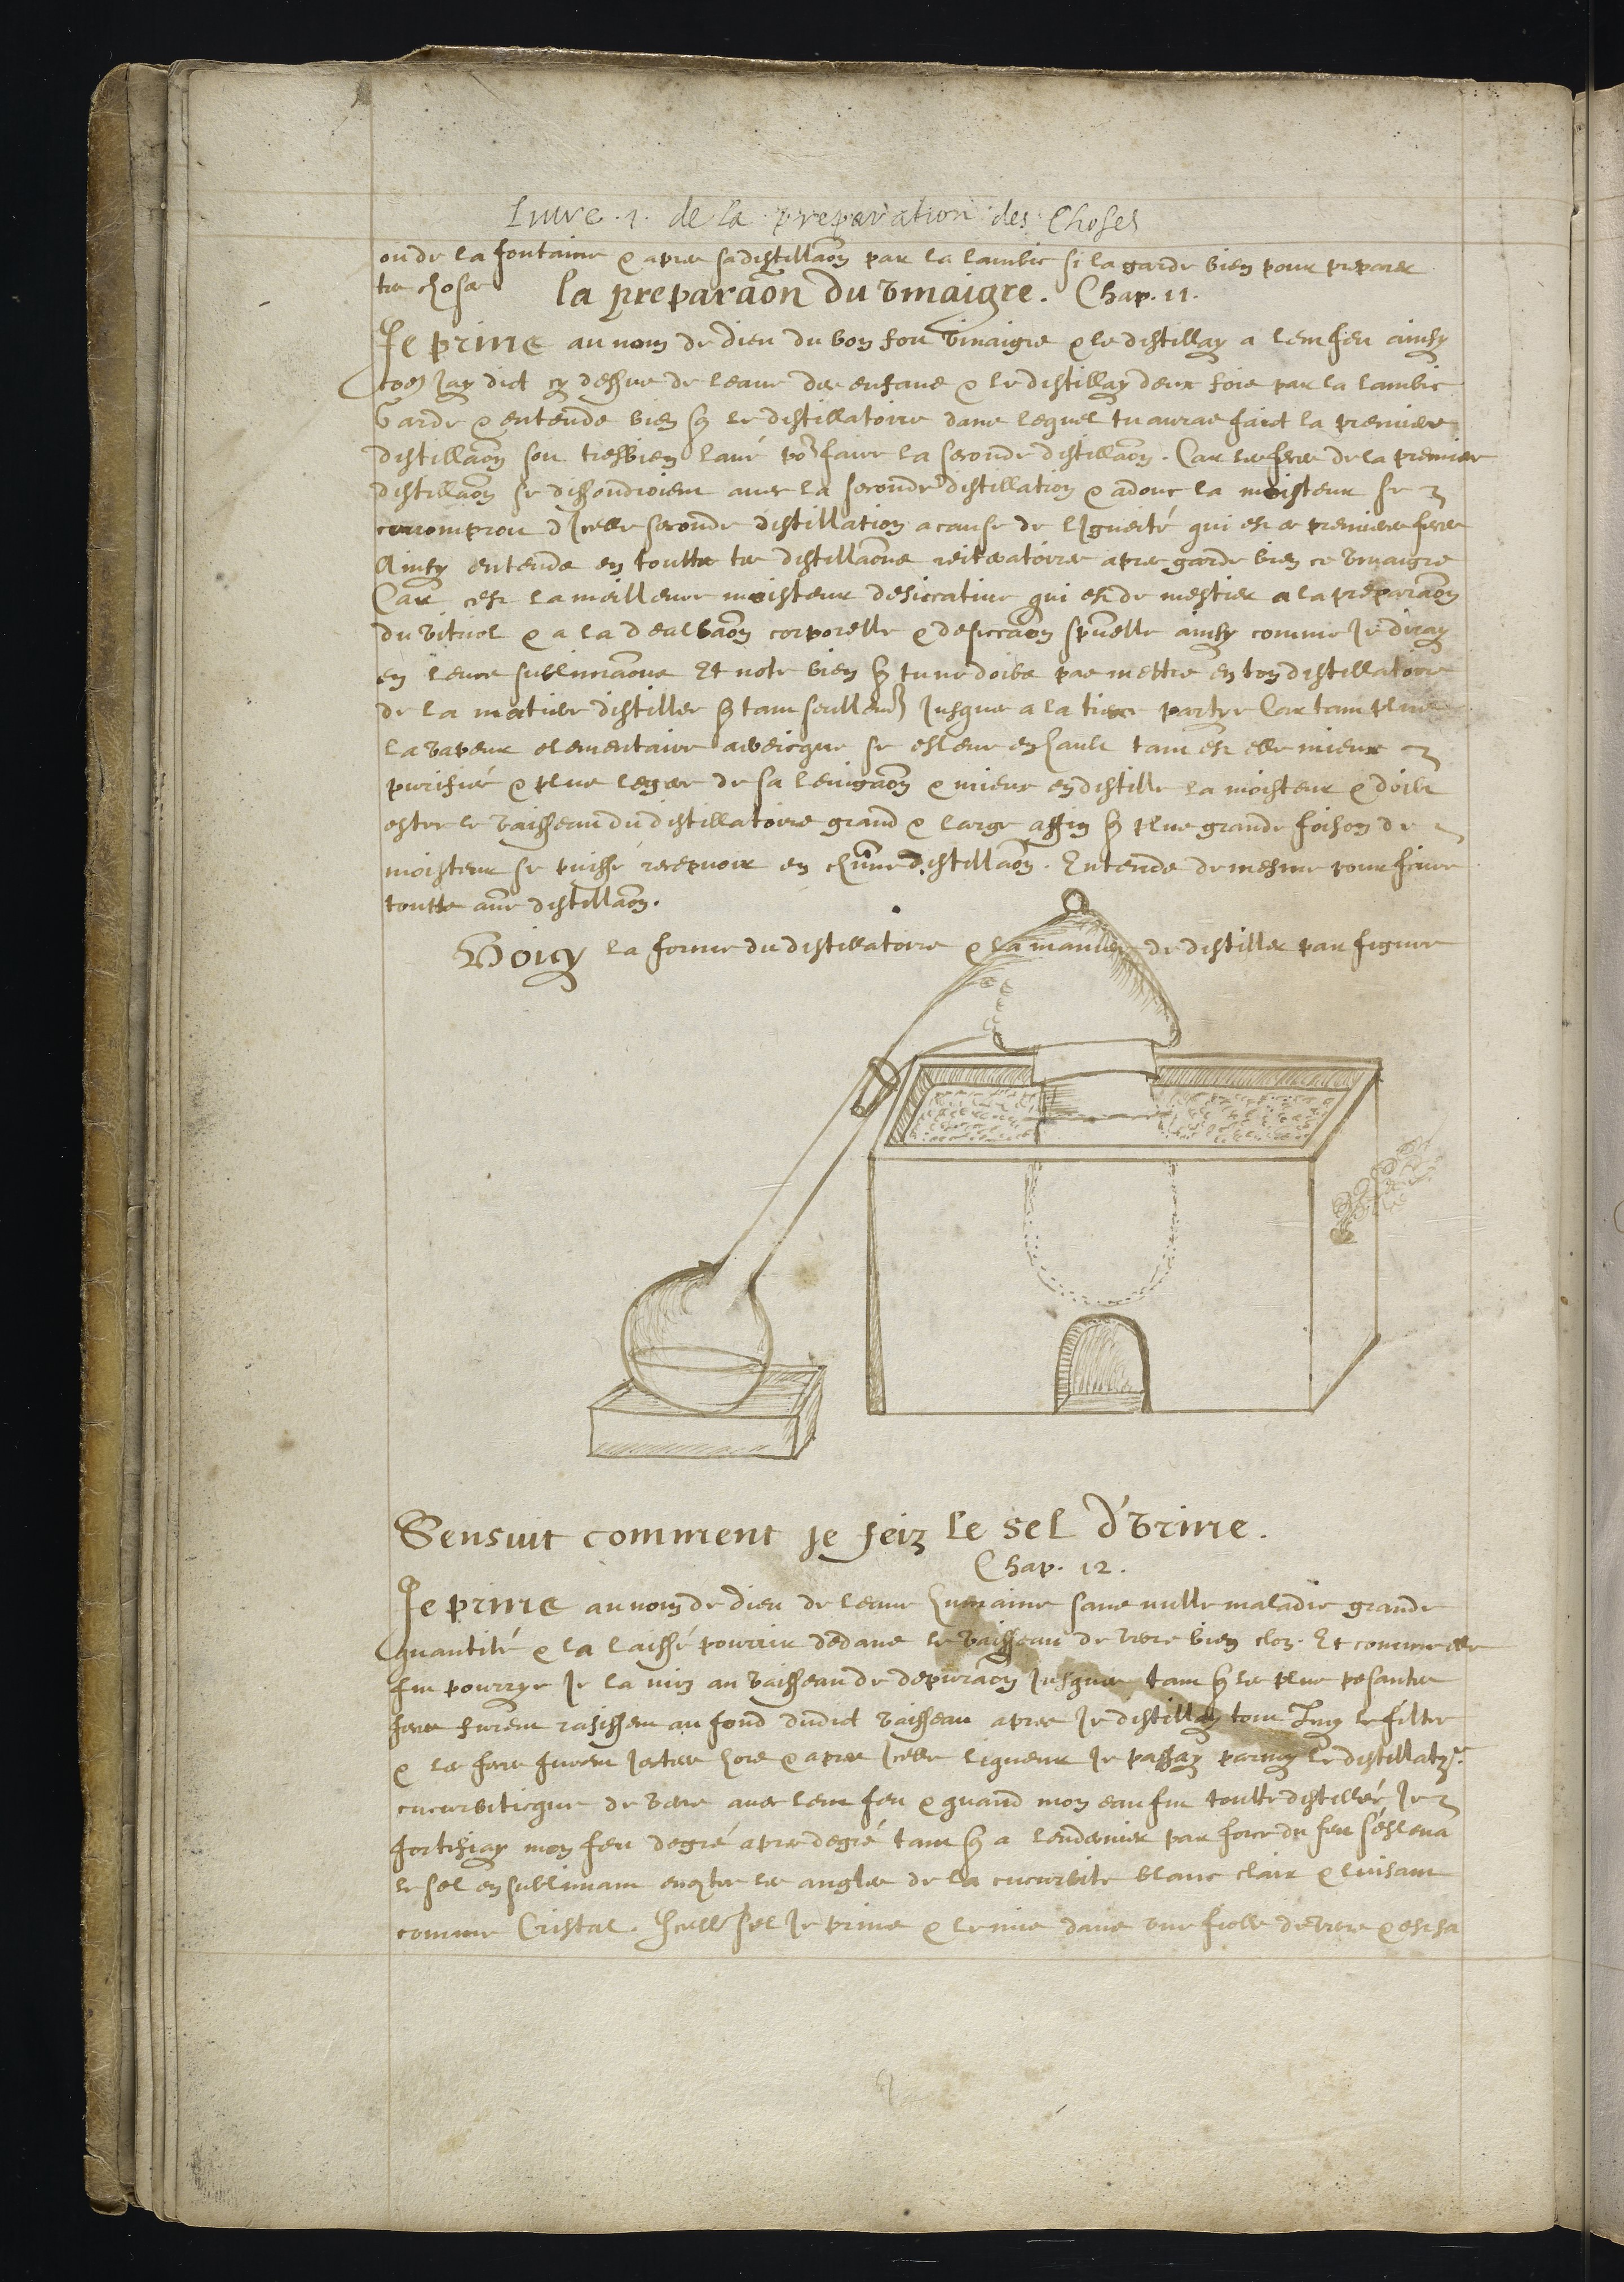 Liure .1. de la preparation des Choses
ou de la fontaine & apres sa distillaōn par la lambic si la garde bien pour preparer
tes choses
la preparaōn du vinaigre. Chap. 11.
Je prins au nom de dieu du bon fort vinaigre & le distillay a lent feu ainsy
coē Jay dict cy dessus de leaue des enfans & le distillay deux fois par la lambic
Garde & entends bien q̄ le distillatoire dans lequel tu auras faict la premiere
distillaōn soit tresbien laué poʳ faire la seconde distillaōn. Car les feces de la premier
distillaōn se dissoudroient auec la seconde distillation & adonc la moisteur se
corromproit dIcelle seconde distillation a cause de lIgneité qui est es premieres feces
Ainsy entends en touttes tes distillaōns reiteratoires apres garde bien ce vinaigre
Car cest la meilleure moisteur desiccatiue qui est de mestier a la preparaōn
du vitriol & a la dealbaōn corporelle & desiccaōn spūelle ainsy comme Je diray
en leurs sublimaōns Et note bien q̄ tu ne doibs pas mettre en ton distillatoire
de la matiere distiller q̄ tant seullemt Jusques a la tierce partye Car tant plus
la vapeur elementaire aereicque se esleue en hault tant est elle mieux
purifiée & plus legere de sa leuigaōn & mieux en distille la moisteur & doibt
estre le vaisseau du distillatoire grand & large affin q̄ plus grande foison de
moisteur se puisse recepuoir en chūne distillaōn. Entends de mesme pour faire
toutte aūre distillaōn.
Voicy la forme du distillatoire & la maniere de distiller par figure
Sensuit comment je feiz le sel d'vrine.
Chap. 12.
Je prins au nom de dieu de leaue humaine sans nulle maladie grande
quantité & la laissé pourrir dedans le vaisseau de verre bien clos. Et comme elle
fut pourrye Je la mis au vaisseau de depuraōn Jusques tant q̄ les plus pesantes
feces furent rasissent au fond dudict vaisseau apres Je distillay tout Ius le filtre
& les feces furent Jectees hors & apres Icelle liqueur Je passay parmy le distillatʳᵉ
cucurbiticque de verre auec lent feu & quand mon eau fut toutte distillée Je
fortifiay mon feu degré apres degré tant q̄ a lendemier par force du feu sesleua
le sel en sublimant encontre les angles de la cucurbite blanc clair & luisant
comme Cristal. Icelle sel Je prins & le mis dans une fiolle de verre & est sa